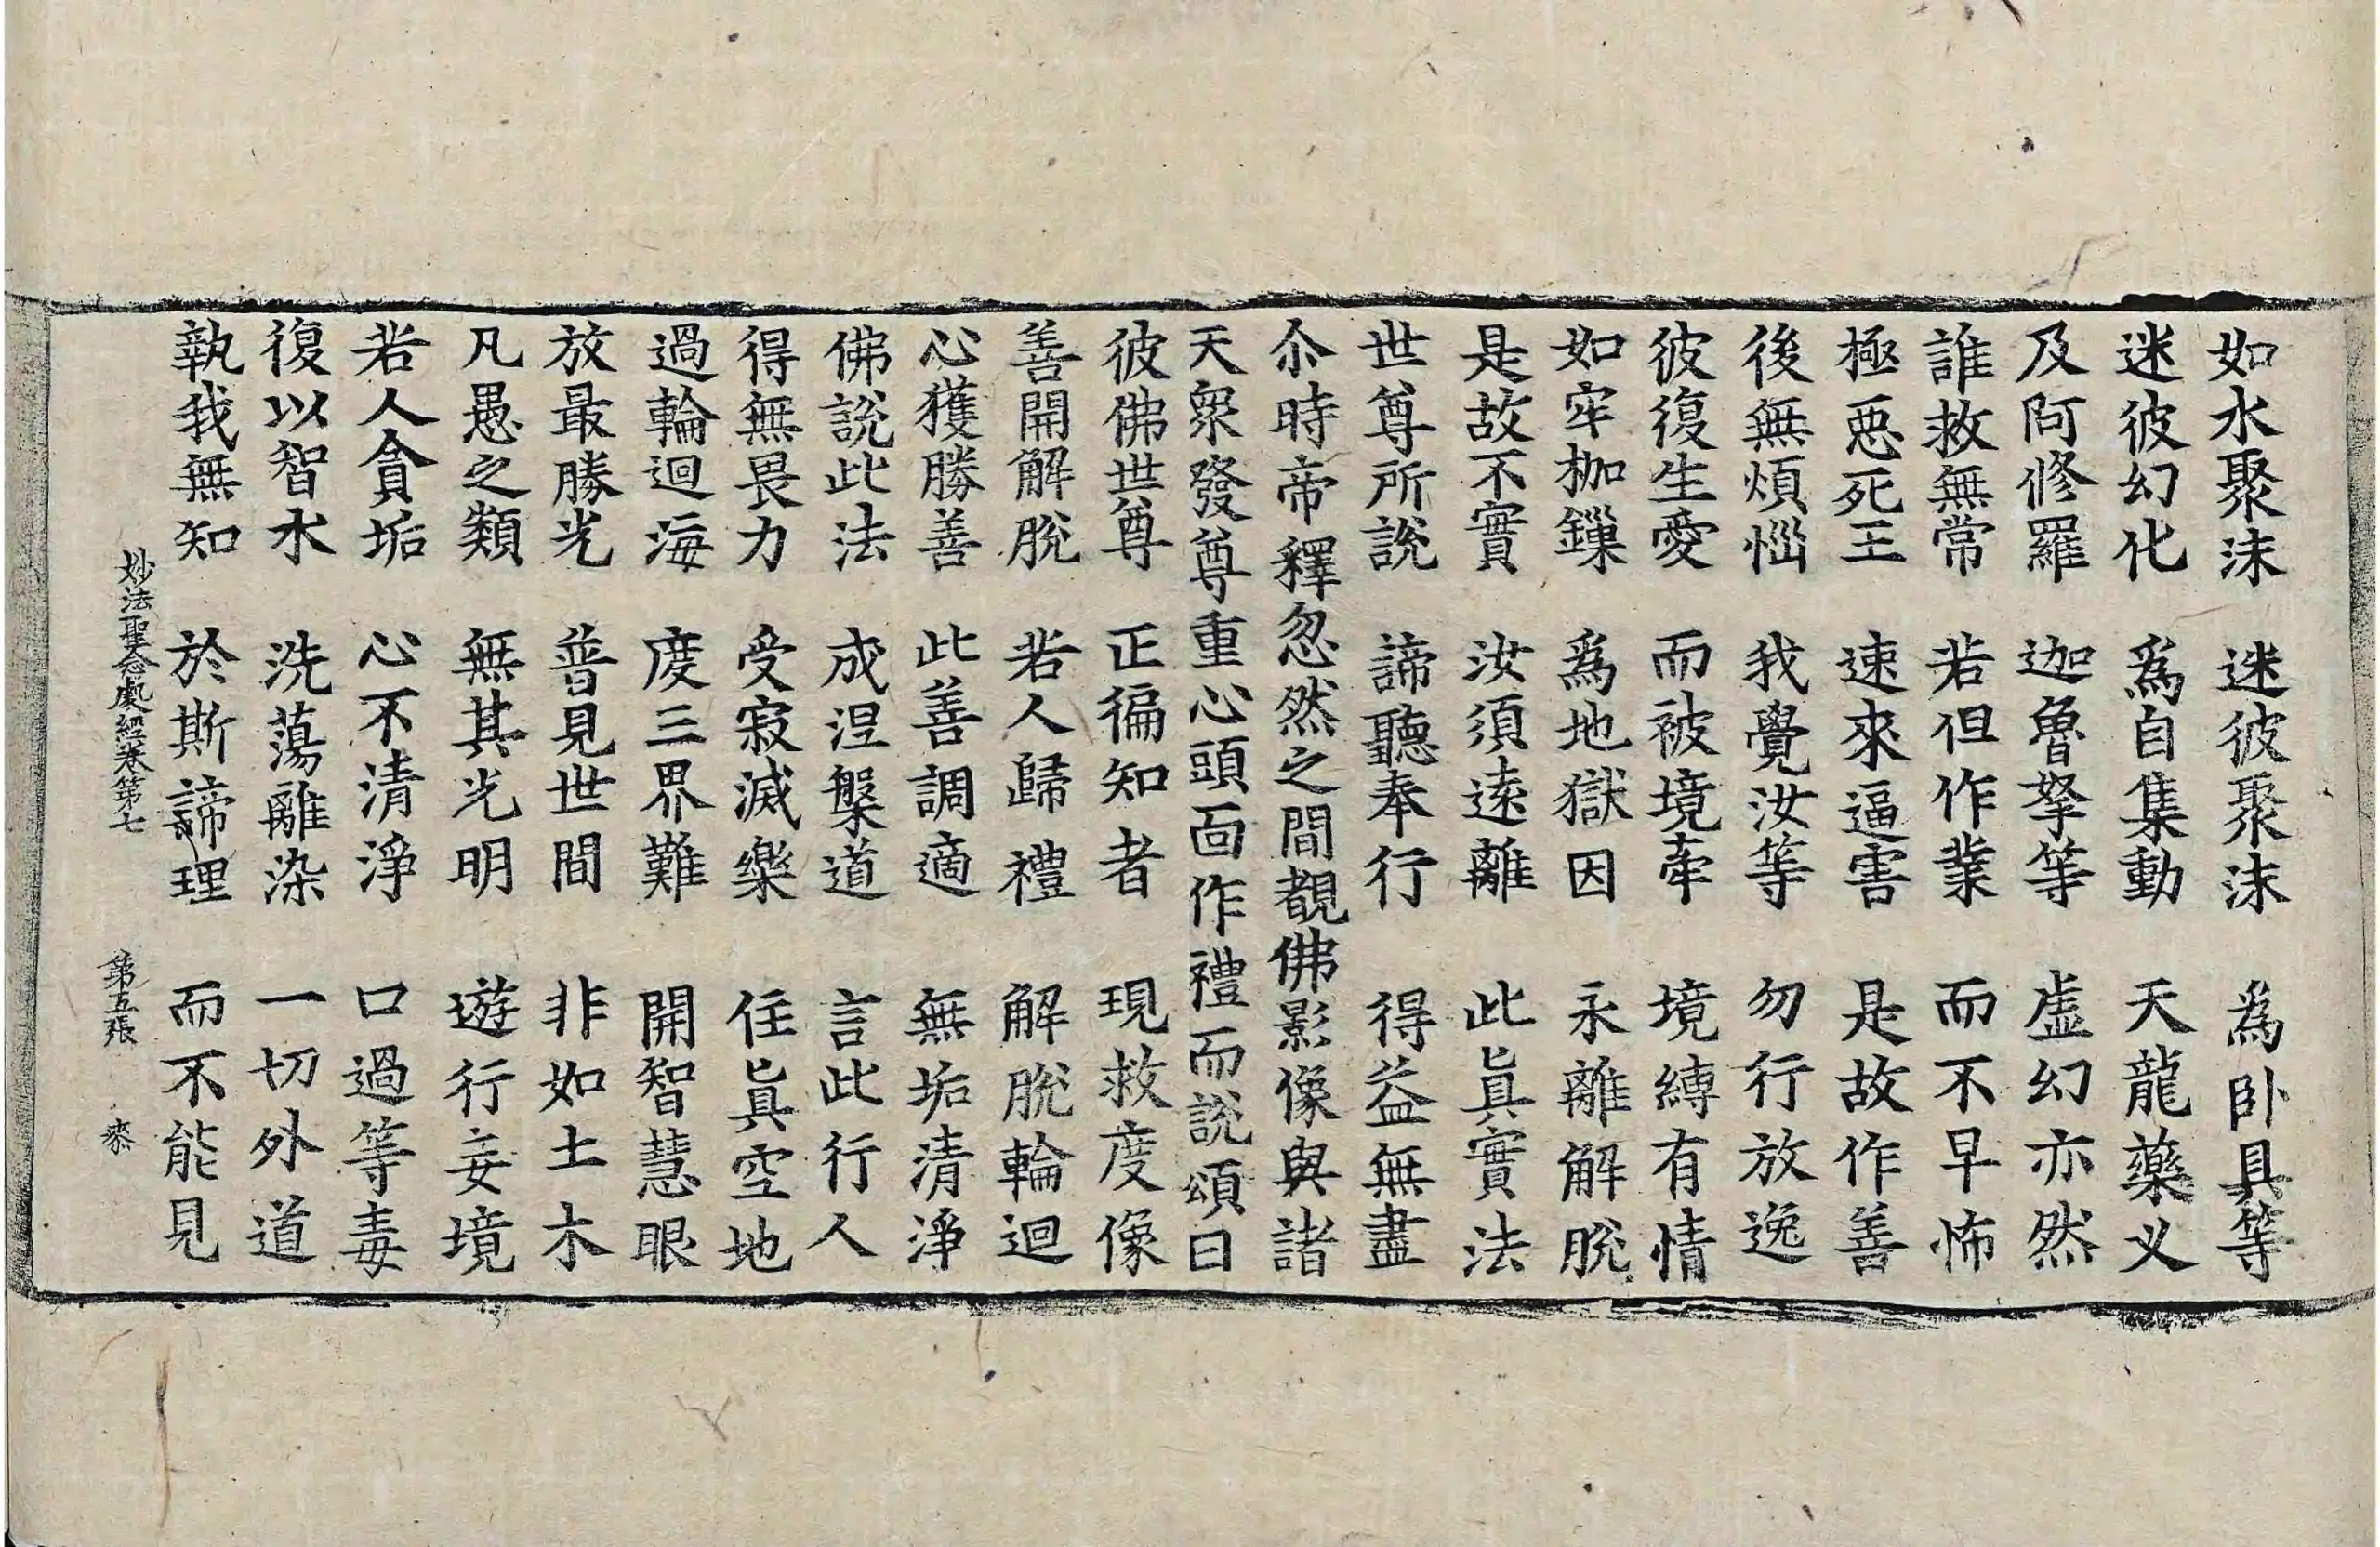 如水聚沫 迷彼聚沫 為卧具等
迷彼幻化 為自集動 天龍藥义
及阿修羅 迦魯拏等 虛幻亦然
誰救無常 若但作業 而不早怖
極惡死王 速來逼害 是故作善
後無煩惱 我覺汝等 勿行放逸
彼復生愛 而被境牽 境縛有情
如牢枷鏁 為地獄因 永離解脫
是故不實 汝須遠離 此眞實法
世尊所說 諦聽奉行 得益無盡
尒時帝釋忽然之間覩佛影像與諸
天衆發尊重心頭面作禮而說頌曰
彼佛世尊 正徧知者 現救度像
善開解脫 若人歸禮 解脫輪迴
心獲勝善 此善調適 無垢清淨
佛說此法 成涅槃道 言此行人
得無畏力 受寂滅樂 住眞空地
過輪迴海 度三界難 開智慧眼
放最勝光 普見世間 非如土木
凡愚之類 無其光明 遊行妄境
若人貪垢 心不清淨 口過等毒
復以智水 洗蕩離染 一切外道
執我無知 於斯諦理 而不能見
妙法聖念處經卷第七 第五張